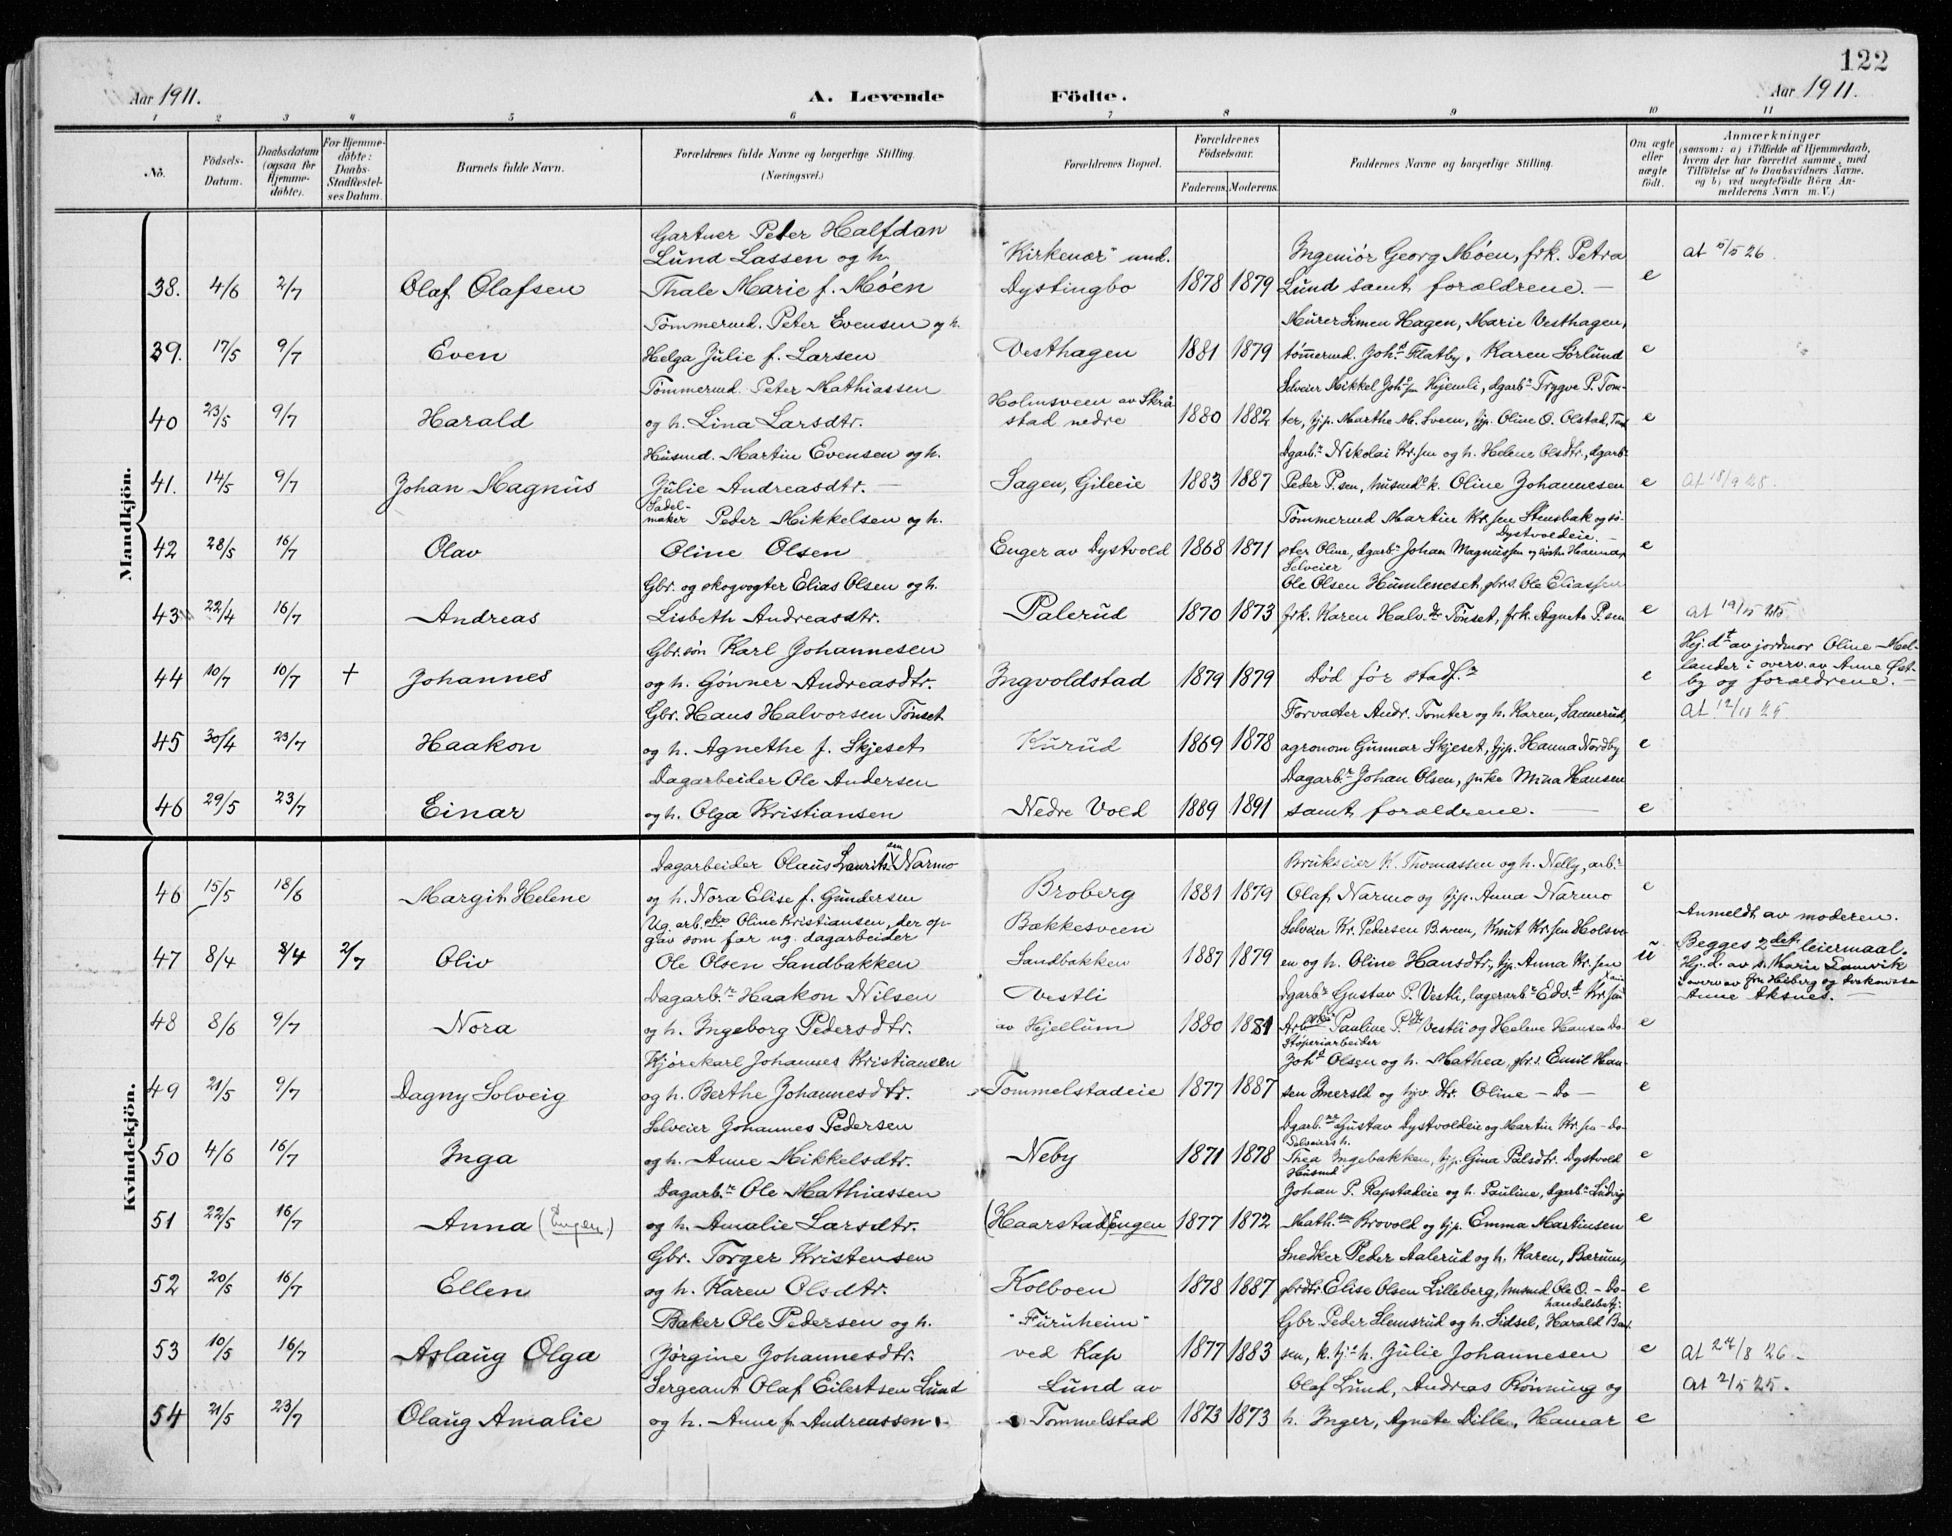 122
Aar 1911.
A. Levende Födte.
Aar 1911.
1 2 3 4 5 6 7 8 9 10 11
No.
Födsels-Datum.
Daabsdatum (ogsaa for Hjemme-döbte).
For Hjemme-döbte: Daabs-Stadfæstel-ses Datum.
Barnets fulde Navn.
Forældrenes fulde Navne og borgerlige Stilling. (Næringsvei.)
Forældrenes Bopæl.
Forældrenes Födselsaar.
Faderens. Moderens.
Faddernes Navne og borgerlige Stilling.
Om ægte eller uægte födt.
Anmærkninger
(saasom: a) i Tilfælde af Hjemmedaab,
hvem der har forrettet samme, med
Tilföielse af to Daabsvidners Navne,
og b) ved uægtefödte Börn An-
melderens Navn m. V.)
Mandkjön.
Gartner Peter Halfdan
Lund Lassen og h. "Kirkenær" und. Ingeniør Georg Møen, frk. Petra at 5/5 26
38. 4/6 2/7 Olaf Olafsen Thale Marie f. Møen Dystingbo 1878 1879 Lund samt forældrene. — e
Tømmermd. Peter Evensen og h. Murer Simen Hagen, Marie Vesthagen,
39. 17/5 9/7 Even Helga Julie f. Larsen Vesthagen 1881 1879 tømmermd. Johs Flatby, Karen Sørlund e
Tømmermd. Peter Mathiassen Holmsveen av Skra- Selveier Mikkel Johssen Hjemli, dgarbr Trygve P. Tom-
40 23/5 9/7 Harald og h. Lina Larsdtr. stad nedre 1880 1882 ter, tjp. Marthe M. Sveen, tjp. Oline O. Olstad, e
Husmd. Martin Evensen og h. Dgarbr Nikolai Kr.sen og h. Helene Olsdtr., dgarbr
41. 14/5 9/7 Johan Magnus Julie Andreasdtr. — Sagen, Gileeie 1883 1887 Peder P.sen, husmds k. Oline Johannesen e at 18/9 28.
Sadel-
maker Peder Mikkelsen og h. Tømmermd Martin Kr.sen Stensbak og sø-
Dystvoldeie. —
42 28/5 16/7 Olav Oline Olsen Enger av Dystvold 1868 1871 ster Oline, dgarbr Johan Magnussen og Hanna, e
Selveier
Gbr. og skogvogter Elias Olsen og h. Ole Olsen Humleneset, gbrs. Ole Eliassen
43 22/4 16/7 Andreas Lisbeth Andreasdtr. Palerud 1870 1873 frk. Karen Halv.dr Tønset, frk. Agnete P.sen e at 19/5
Gbr.søn Karl Johannesen Hj.dt av jordmor Oline Mel-
lander i overv. av Anne Øst-
44 10/7 10/7 + Johannes og h. Gønner Andreasdtr. Ingvoldstad 1879 1879 Død før stadf.n e by og forældrene. —
Gbr. Hans Halvorsen Tønset Forvalter Andr. Tomter og h. Karen, Saanerud, at 12/18 25
45 30/4 23/7 Haakon og h. Agnethe f. Skjeset Kurud 1869 1878 agronom Gunnar Skjeset, tjp. Hanna Nordby e
Dagarbeider Ole Andersen Dagarbr Johan Olsen, pike Mina Hansen
46 29/5 23/7 Einar og h. Olga Kristiansen Nedre Vold 1889 1891 samt forældrene. — e
Kvindekjön.
Dagarbeider Olaus Lauritssen Narmo Brukseier K. Thomassen og h. Nelly, arbr
46 15/5 18/6 Margit Helene og h. Nora Elise f. Gundersen Broberg 1881 1879 Olaf Narmo og tjp. Anna Narmo e
Ug. arb.ske Oline Kristiansen, der op- Bækkesveen Selveier Kr. Pedersen B.sveen, Knut Kr.sen Holsve- Anmeldt av moderen.
gav som far ug. dagarbeider
47 8/4 8/4 2/7 Oliv Ole Olsen Sandbakken Sandbakken 1887 1879 en og h. Oline Hansdtr., tjp. Anna Kr.sen u Begges 2det leiermaal.
Hj.d. av Marie Lamvik
i overv. av fru Heiberg og
Anne Aksnes. —
Dagarbr Haakon Nilsen Vestli Dgarbr Gustav P. Vestli, lagerarbr Edv.d Kr.sen
48 8/6 9/7 Nora og h. Ingeborg Pedersdtr. av Hjellum 1880 1881 Arb.ske Pauline P.dtr Vestli og Helene Hansen Do e
Støperiarbeider
Kjørekarl Johannes Kristiansen Johs Olsen og h. Mathea, gbr.s. Emil Han-
49 21/5 9/7 Dagny Solveig og h. Berthe Johannesdtr. Tommelstadeie 1877 1887 sen Imersld og Oline — Do — e
Selveier Johannes Pedersen Dgarb.ne Gustav Dystvoldeie og Martin Kr.sen — Do-
50 4/6 16/7 Inga og h. Anne Mikkelsdtr. Neby 1871 1878 Thea Ingebakken, tjp. Gina Palsdtr. Dystvold e
Husmd
Dagarbr Ole Mathiassen Johan P. Rapstadeie og h. Pauline, dgarbr Ludvig
51 22/5 16/7 Anna (Engen) og h. Amalie Larsdtr. (Haarstad) Engen 1877 1872 Math.sen Brovold og tjp. Emma Martinsen e
Gbr. Torger Kristensen Snedker Peder Aalerud og h. Karen, Bærum,
52 20/5 16/7 Ellen og h. Karen Olsdtr. Kolboen 1878 1887 gbrdtr. Elise Olsen Lilleberg, husmd Ole O. — Do- e
handelsbetj.
Baker Ole Pedersen og h. "Furuheim" Gbr. Peder Slemsrud og h. Sidsel, Harald
53 10/5 16/7 Aslaug Olga Jørgine Johannesdtr. ved Kap 1877 1883 sen, h. Julie Johannesen e at 24/8 26 -
Sergeant Olaf Eilertsen Lund Lund av Olaf Lund, Andreas Rønning og at 2/5 25.
54 21/5 23/7 Olaug Amalie og h. Anne f. Andreassen. Tommelstad 1873 1873 h. Inger, Agnete Dille, Hamar e